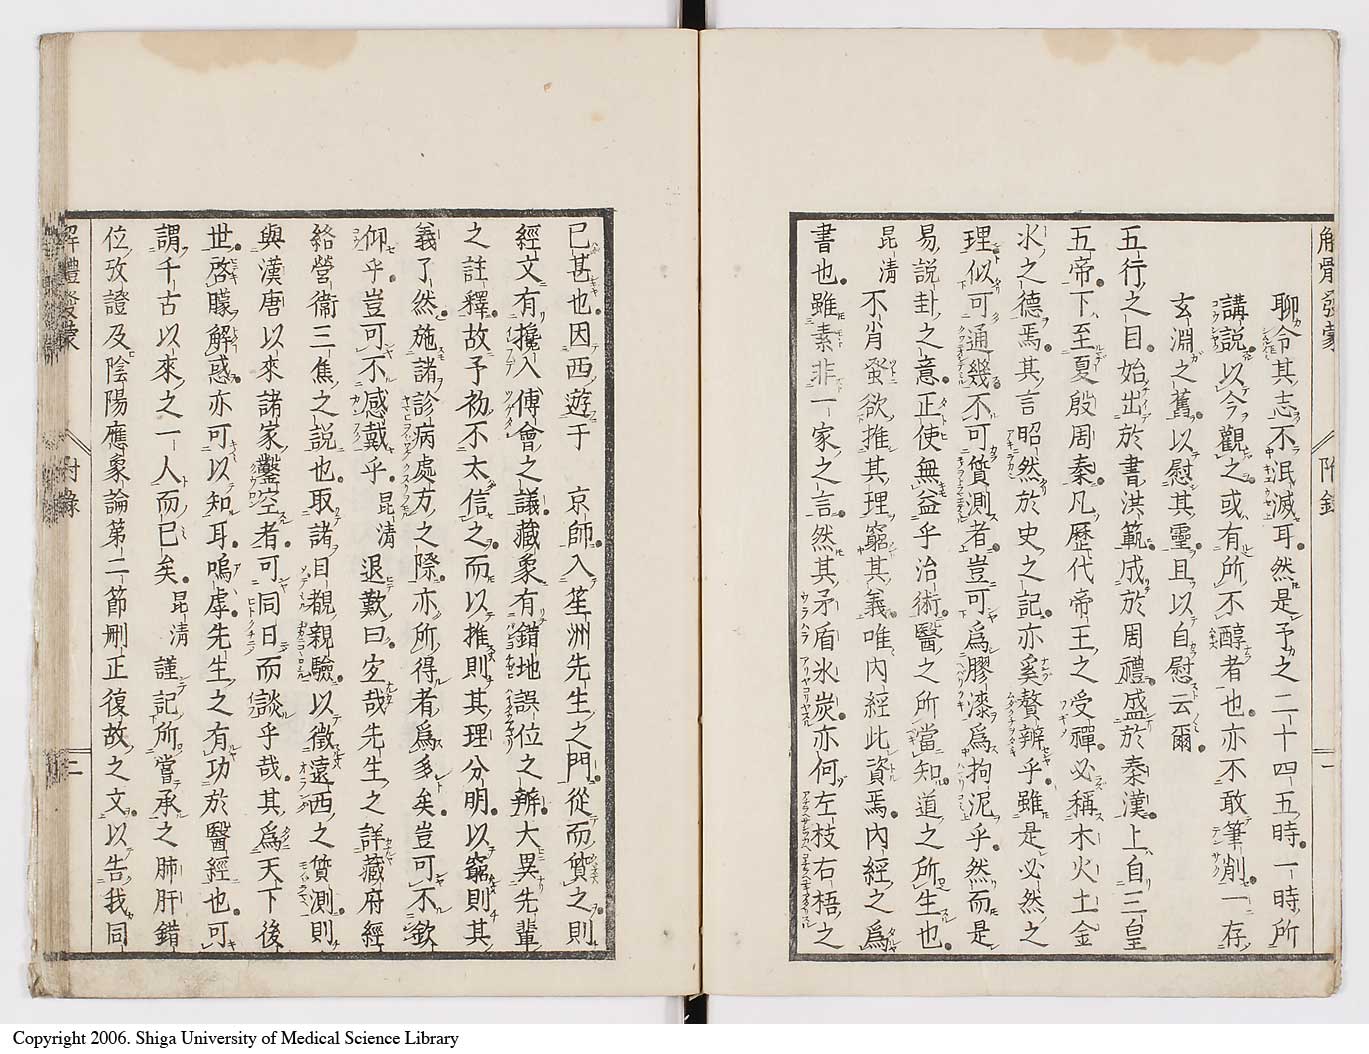 聊令其志不泯滅耳然是予之二十四五時一時所
講説以今觀之或有所不醇者也亦不敢筆削一存
玄淵之舊以慰其靈且以自慰云爾
五行之目始出於書洪範成於周禮盛於秦漢上自三皇
五帝下至夏殷周秦凡歷代帝王之受禪必稱木火土金
水之德焉其言昭然於史之記亦奚贅辨乎雖是必然之
理似可通幾不可質測者豈可爲膠漆爲拘泥乎然而是
易説卦之意正使無益乎治術醫之所當知道之所生也
昆清不肖蚤欲推其理窮其義唯內經此資焉內經之爲
書也雖素非一家之言然其矛盾氷炭亦何左枝右梧之
解體發蒙 附錄 一
已甚也因西遊于 京師入笙洲先生之門從而質之則
經文有攙入傅會之議藏象有錯地誤位之辨大異先輩
之註釋故予初不太信之而以推則其理分明以窮則其
義了然施諸診病處方之際亦所得者爲多矣豈可不欽
仰乎豈可不感戴乎昆清退歎曰宏哉先生之詳藏府經
絡營衞三焦之説也取諸目覩親驗以徵遠西之質測則
與漢唐以來諸家鑿空者可同日而談乎哉其爲天下後
世啓矇解惑亦可以知耳嗚虖先生之有功於醫經也可
謂千古以來之一人而已矣昆清謹記所嘗承之肺肝錯
位攷證及陰陽應象論第二節刪正復故之文以告我同
解體發蒙 附錄 二
Copyright 2006. Shiga University of Medical Science Library